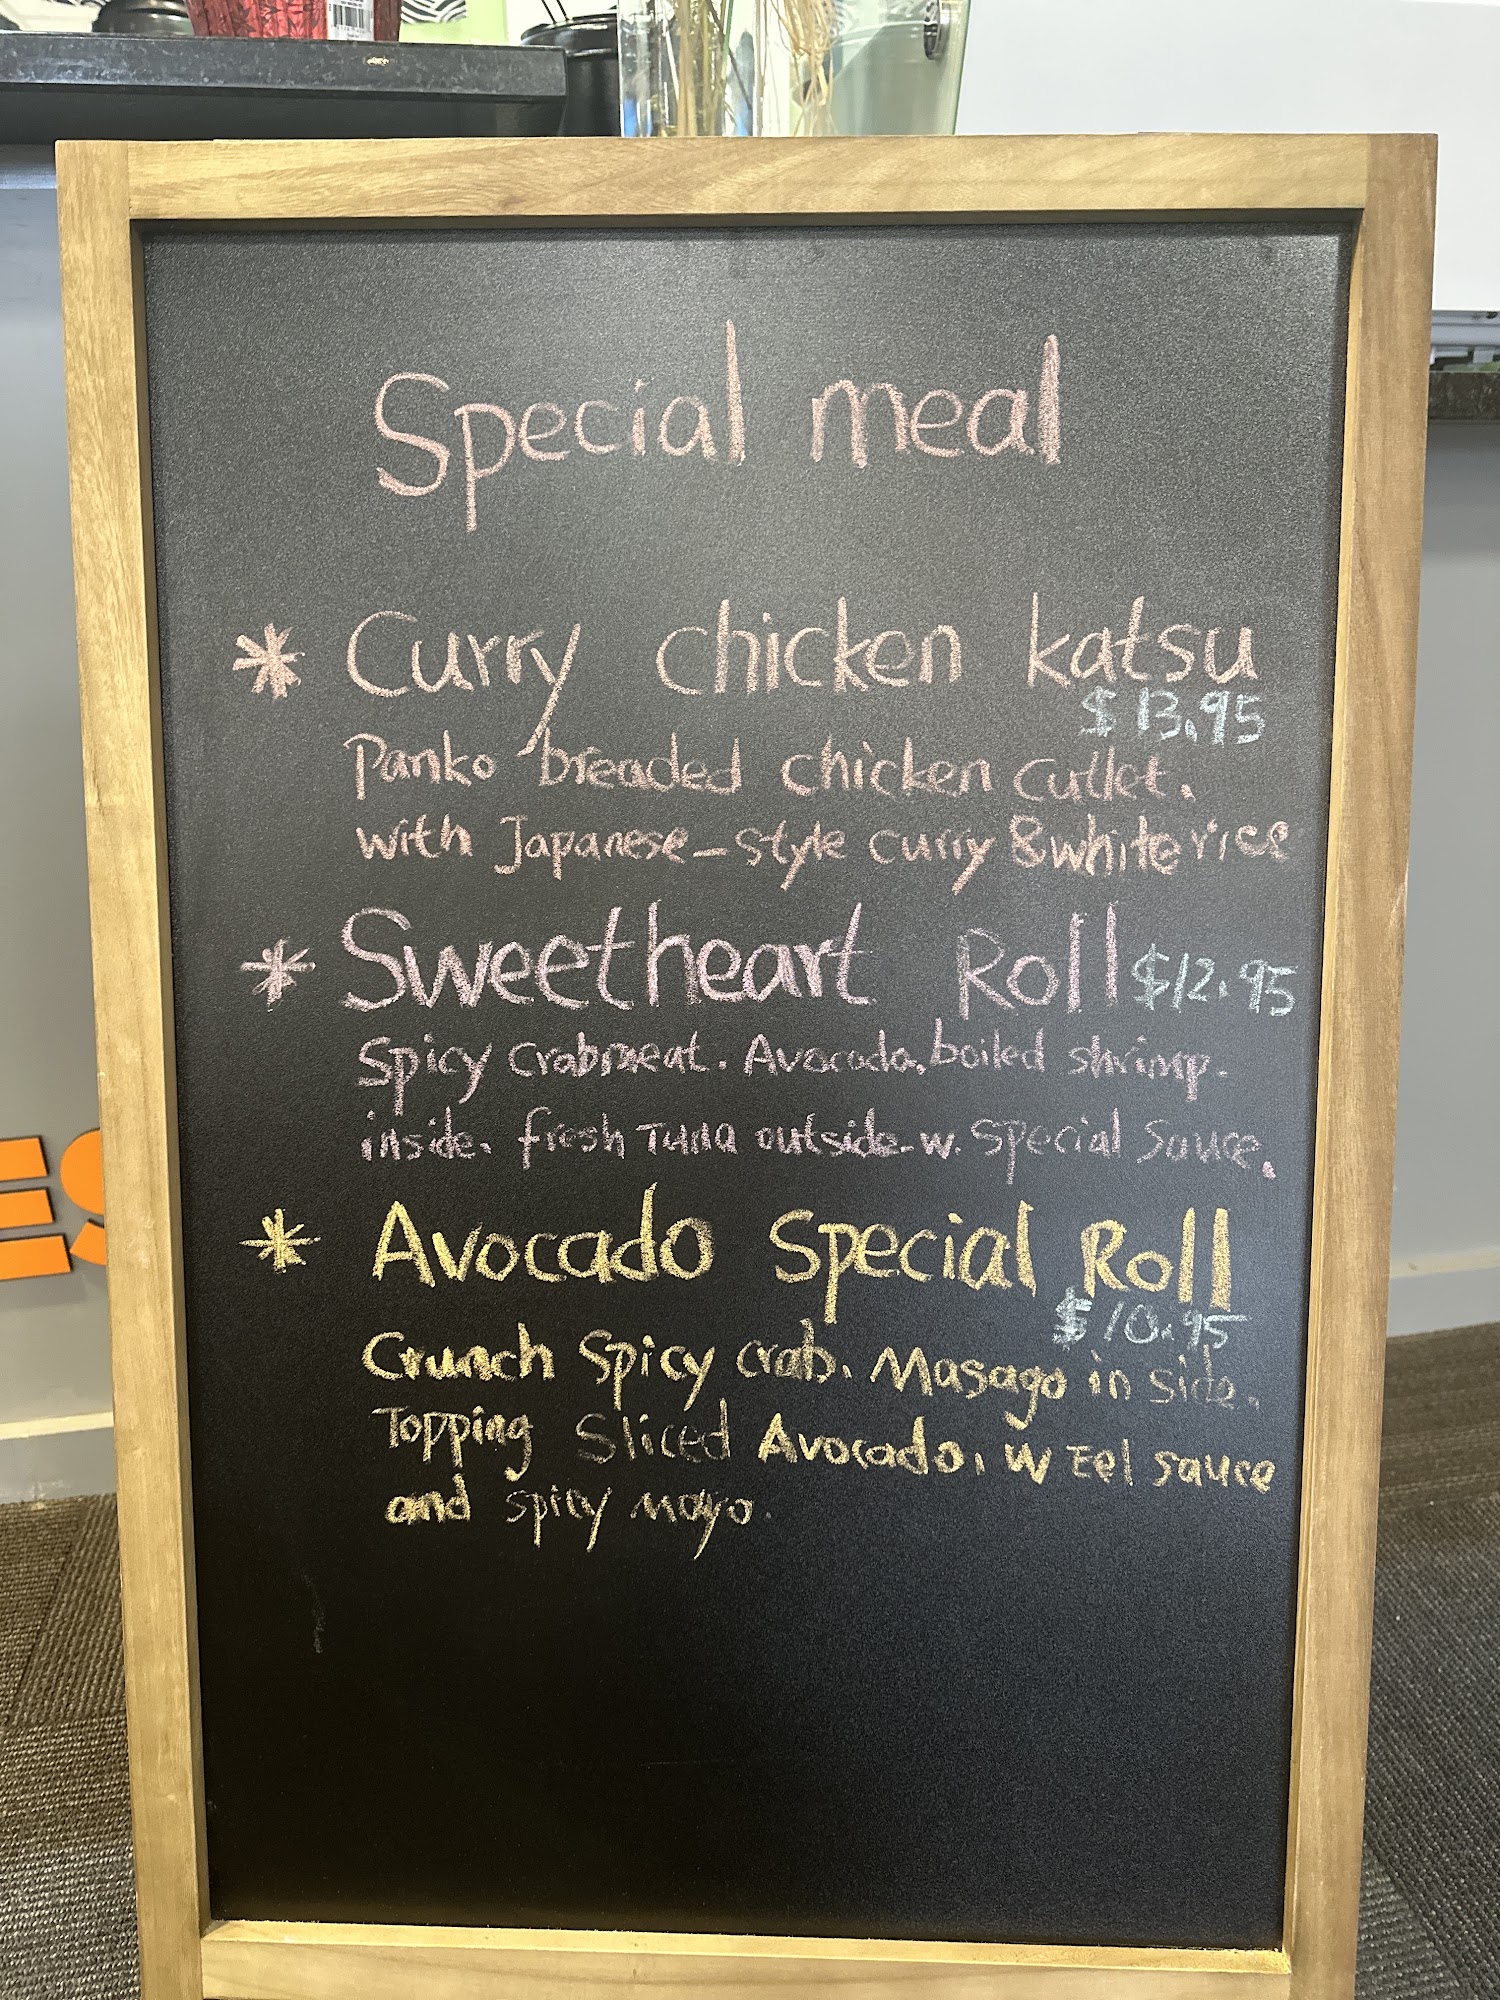 Special meal
* Curry chicken katsu
$13.95
Panko breaded chicken cutlet.
with Japanese-style curry & white rice
* Sweetheart Roll $12.95
Spicy Crabmeat. Avocado, boiled shrimp.
inside. fresh Tuna outside w. Special Sauce.
* Avocado Special Roll
$10.95
Crunch Spicy crab. Masago in side.
Topping Sliced Avocado. W Eel sauce
and spicy mayo.
ES